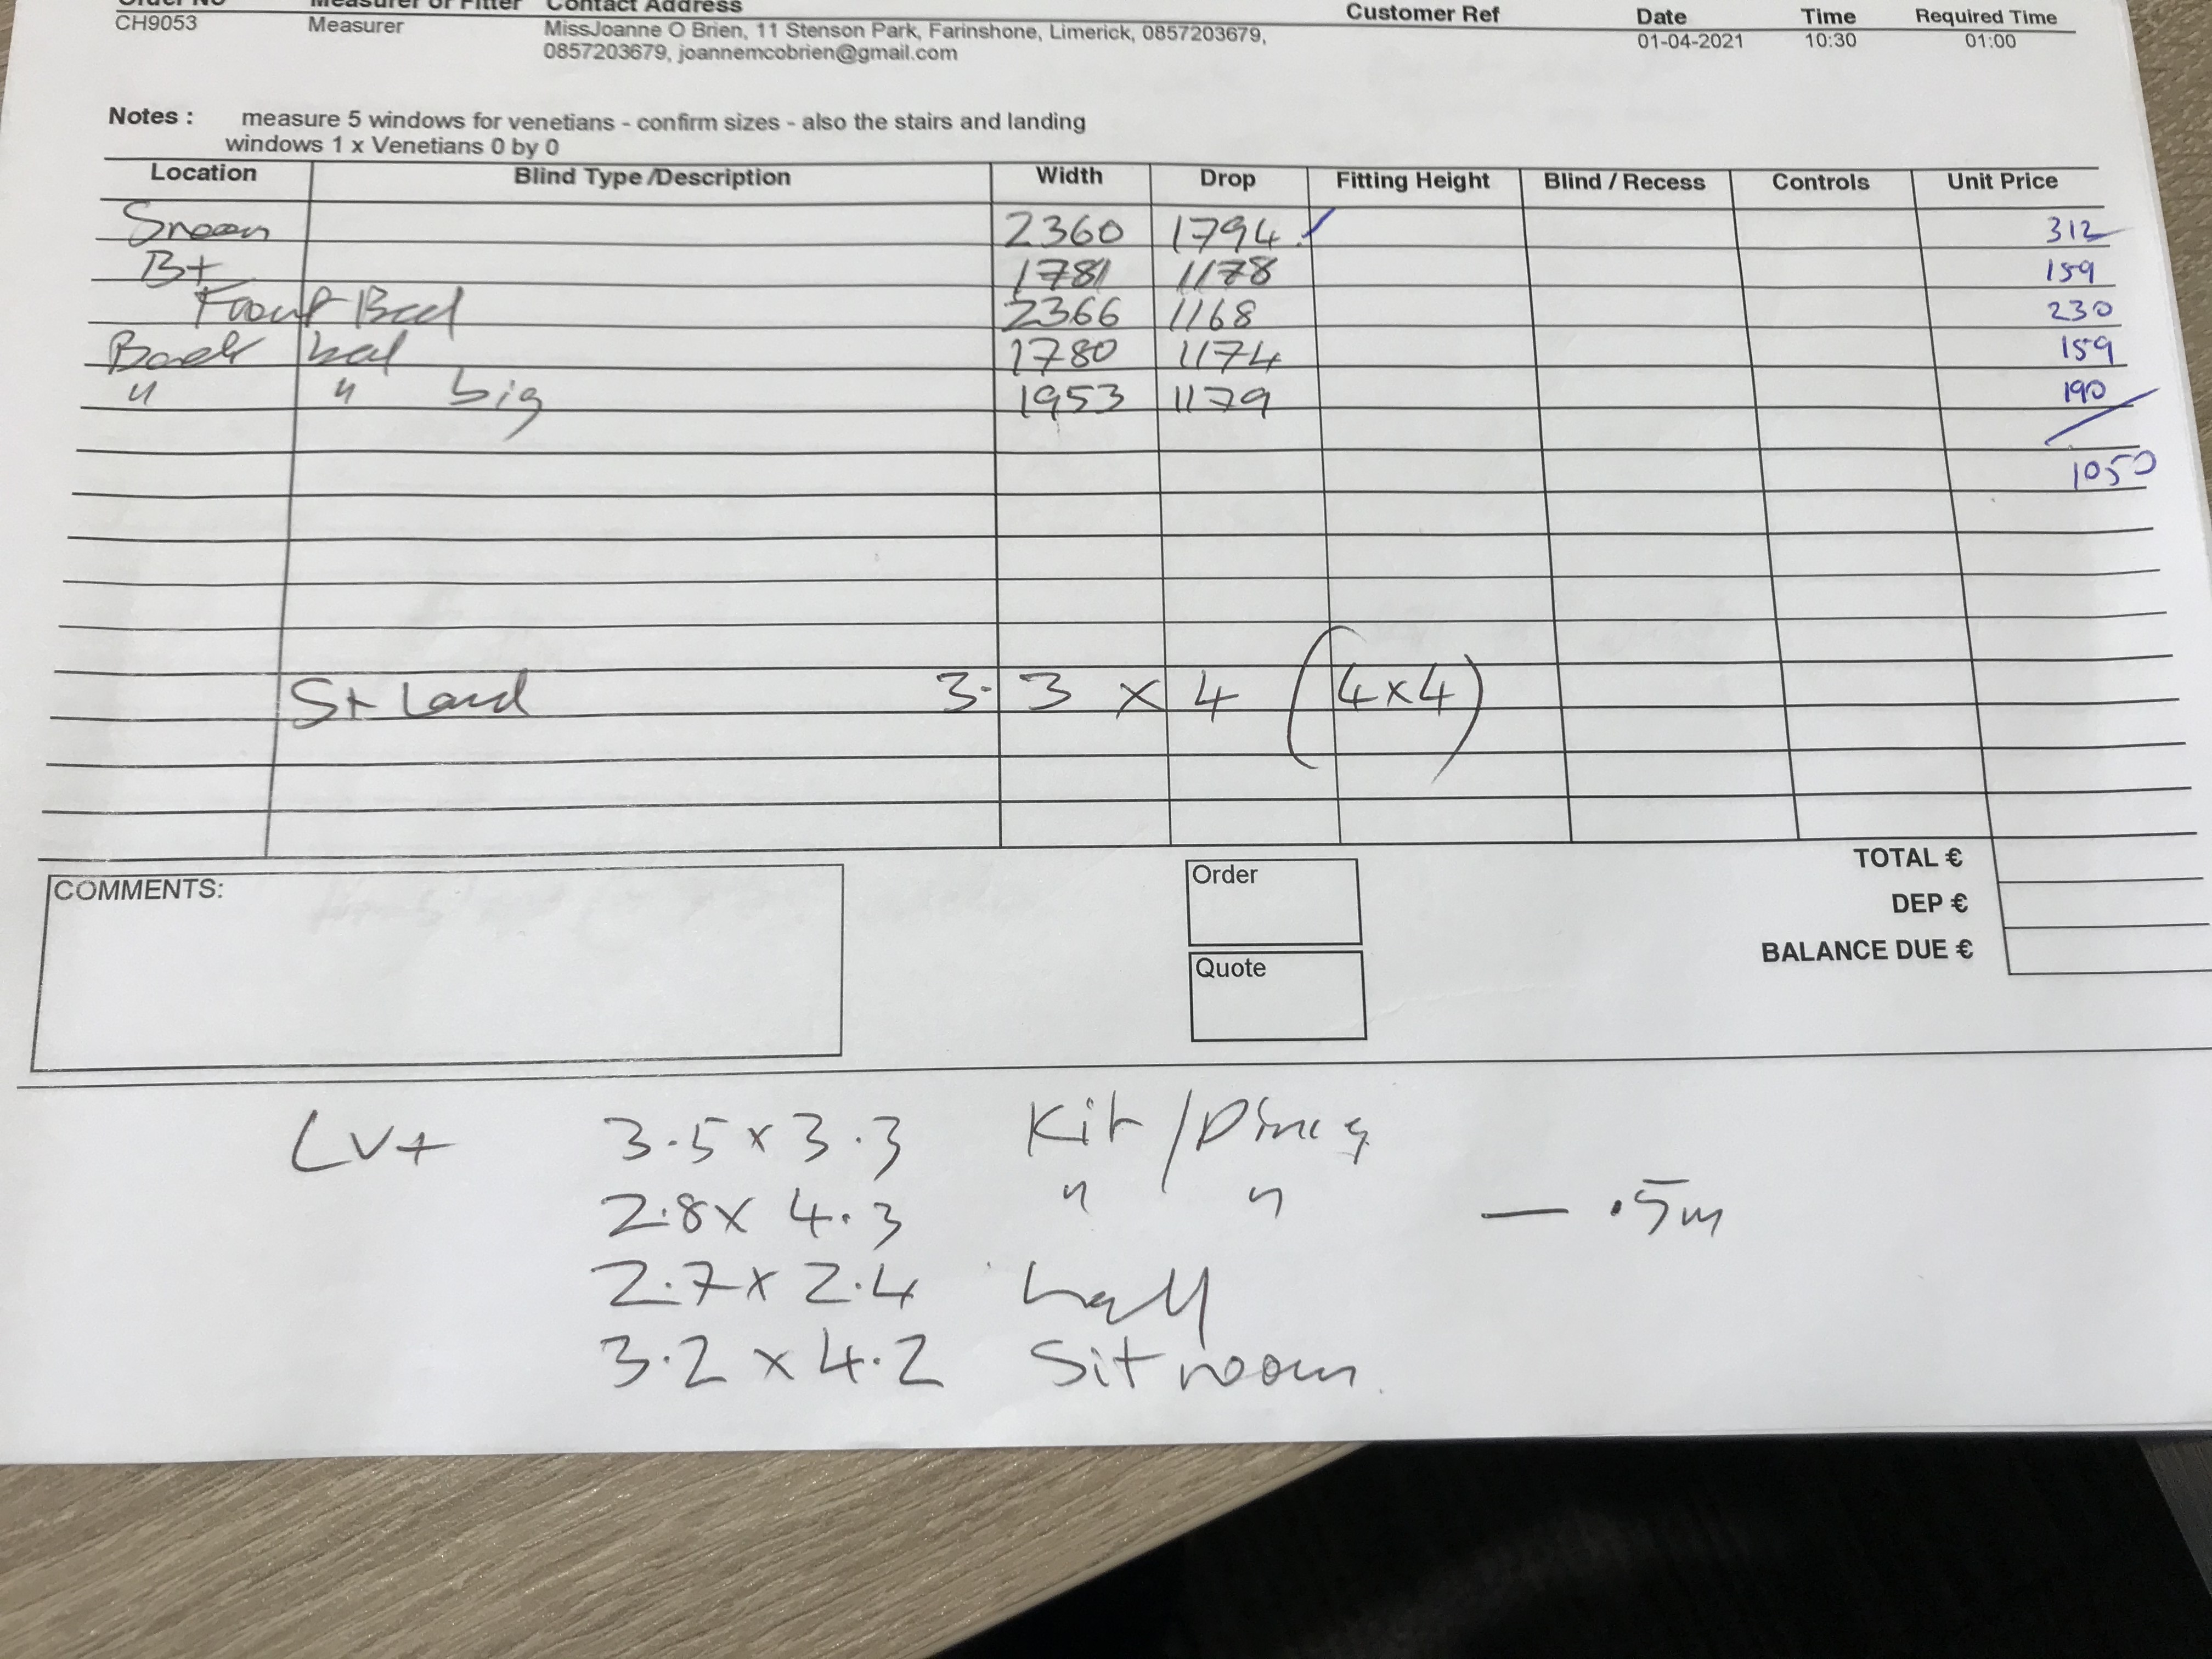 Order No Measurer or Fitter Contact Address Customer Ref Date Time Required Time
CH9053 Measurer MissJoanne O Brien, 11 Stenson Park, Farinshone, Limerick, 0857203679, 01-04-2021 10:30 01:00
0857203679, joannemcobrien@gmail.com
Notes : measure 5 windows for venetians - confirm sizes - also the stairs and landing
windows 1 x Venetians 0 by 0
Location Blind Type /Description Width Drop Fitting Height Blind / Recess Controls Unit Price
Sroom 2360 1794 312
B+ 1781 1178 159
Front Bed 2366 1168 230
Back bed 1780 1174 159
" " big 1953 1179 190
1050
St Land 3.3 x 4 (4x4)
TOTAL €
COMMENTS: Order
DEP €
BALANCE DUE €
Quote
LVT 3.5 x 3.3 Kit/Dining
2.8 x 4.3 " " — .5m
2.7 x 2.4 hall
3.2 x 4.2 Sitroom.